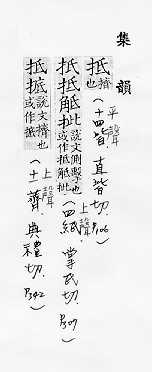 集韻
抵擠也 (平聲十四皆) 直皆切. P.106
扺抵觝 說文側擊也 或作抵觝 (上聲四紙) 掌氏切. P.309
抵 說文擠也 或作 (上聲十一薺) 典禮切. P.342